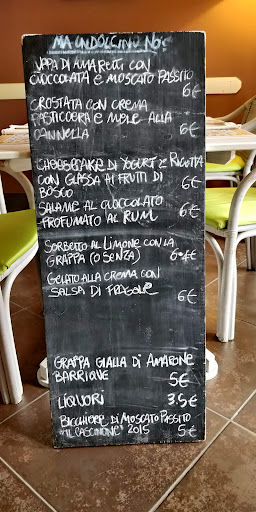 MA UN DOLCINO NO?
CUPA DI AMARETTI CON
CIOCCOLATA E MOSCATO PASSITO
6€
CROSTATA CON CREMA
PASTICCERA E MELE ALLA
CANNELLA 6€
CHEESECAKE DI YOGURT E RICOTTA
CON GLASSA AI FRUTTI DI
BOSCO 6€
SALAME AL CIOCCOLATO
PROFUMATO AL RUM 6€
SORBETTO AL LIMONE CON LA
GRAPPA (O SENZA) 6-4€
GELATO ALLA CREMA CON
SALSA DI FRAGOLE 6€
GRAPPA GIALLA DI AMARONE
BARRIQUE 5€
LIQUORI 3.5€
BICCHIERE DI MOSCATO PASSITO
"IL CASCINONE" 2015 5€